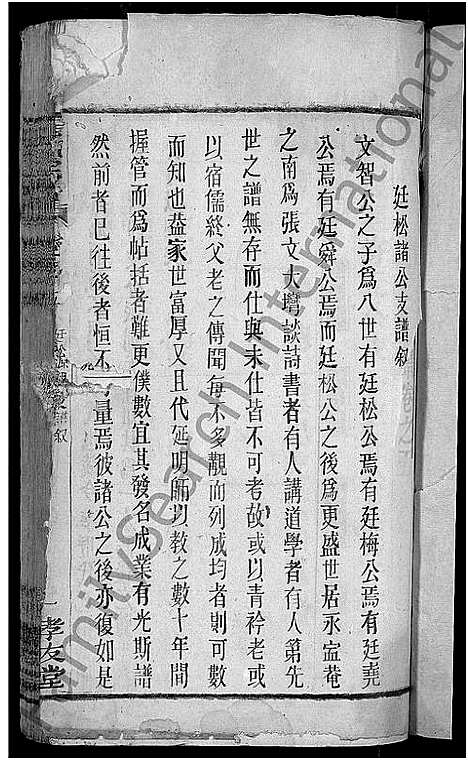 廷松諸公支譜叙
文智公之子爲八世有廷松公焉有廷梅公焉有廷堯
公焉有廷舜公焉而廷松公之後爲更盛世居永寍菴
之南爲張文大壪談詩書者有人講道學者有人第先
世之譜無存而仕與未仕皆不可考故或以青衿老或
以宿儒終父老之傳聞每不多覯而列成均者則可數
而知也葢家世富厚又且代延明師以教之數十年間
握管而爲帖括者難更僕數宜其發名成業有光斯譜
然前者已往後者恒不可量焉彼諸公之後亦復如是
廷松 支譜叙
一 孝友堂
FamilySearch International